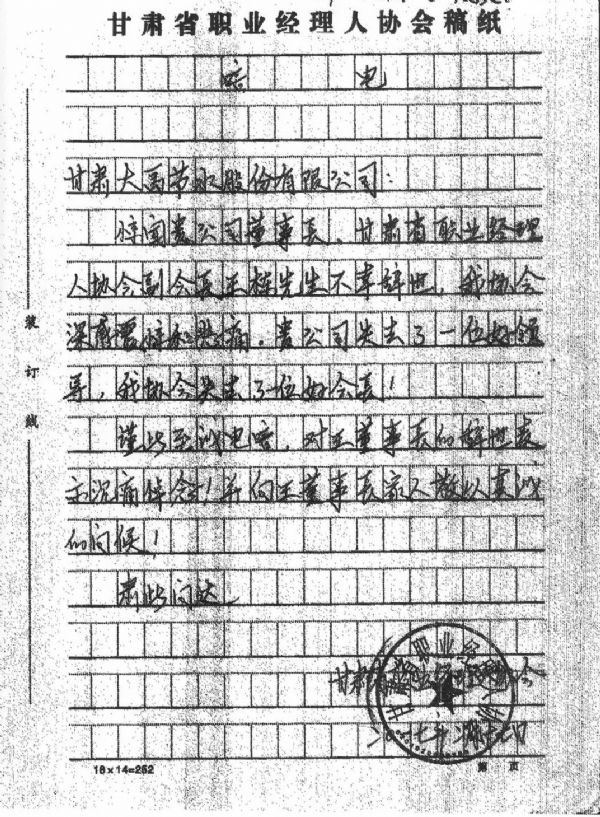 甘肃省职业经理人协会稿纸
唁电
甘肃大禹节水股份有限公司：
惊闻贵公司董事长、甘肃省职业经理
人协会副会长王栋先生不幸辞世，我协会
深感震惊和悲痛。贵公司失去了一位好领
导，我协会失去了一位好会长！
谨此至诚电唁，对王董事长的辞世表
示沉痛悼念！并向王董事长家人致以真诚
的问候！
肃此问达。
甘肃省职业经理人协会
二〇一七年二月十七日
装订线
18×14=252
第 页